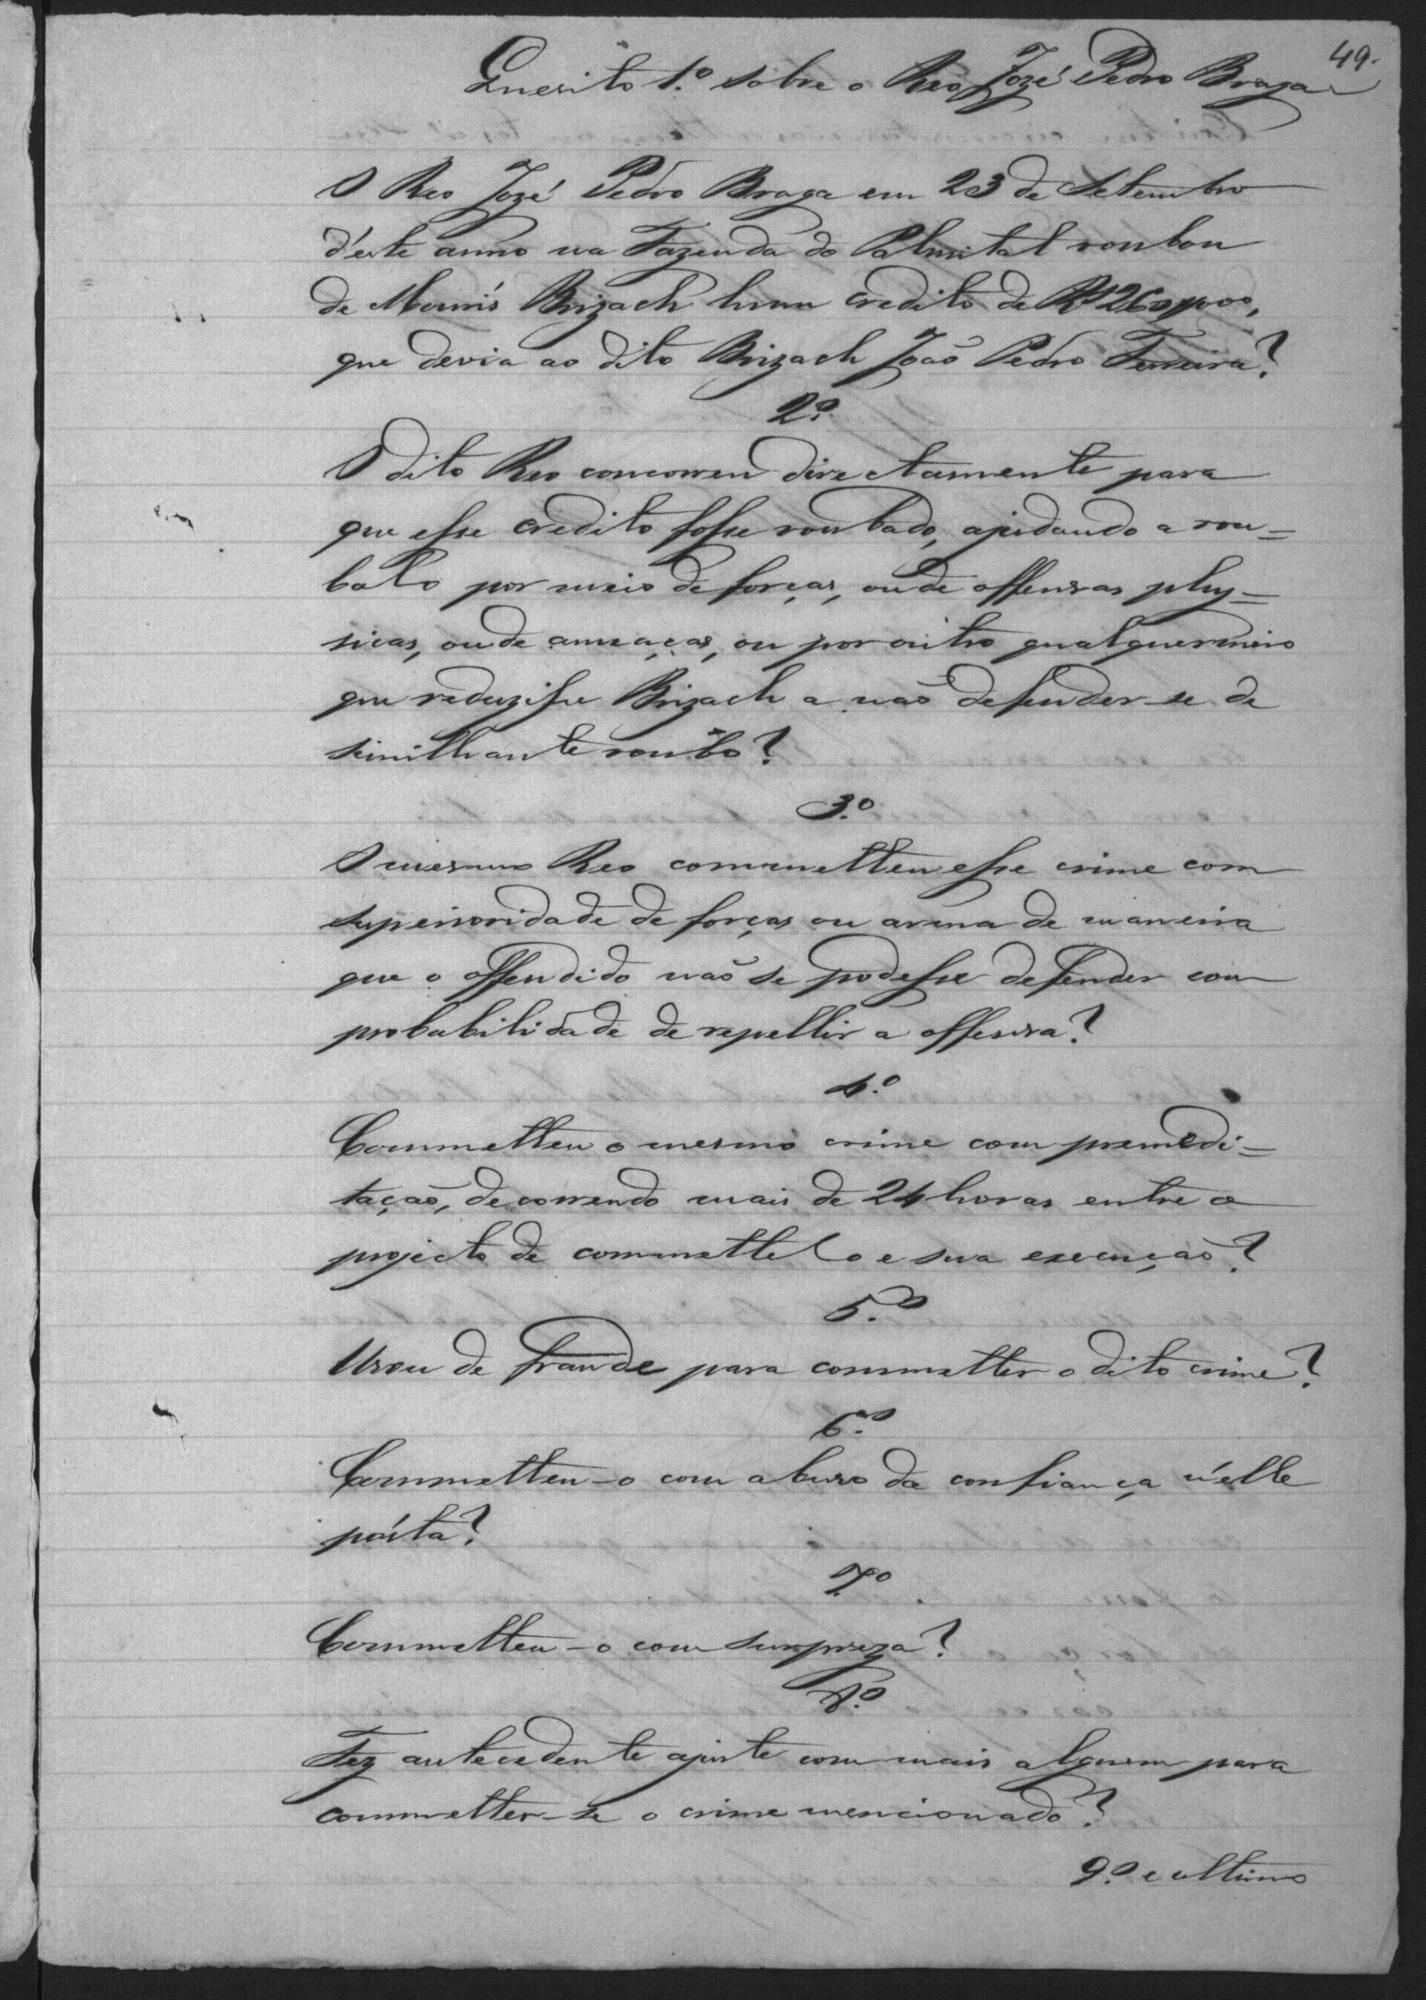 49.
Quesito 1.º sobre o Reo Jozé Pedro Braga
O Reo Jozé Pedro Braga em 23 de Setembro
d'éste anno na Fazenda do Palmital roubou
de Mouris Brizach hum credito de
que devia ao dito Brizach João Pedro Ferreira?
2º.
O dito Reo concorreu directamente para
que esse credito fosse roubado, ajudando a rou=
balo por meio de forças, ou de offensas phy=
sicas, ou de ameaças, ou por outro qualquer meio
que reduzisse Brizach a não defender-se de
similhante roubo?
3.º
O mesmo Reo commetteu esse crime com
superioridade de forças ou arma de maneira
que o offendido não se podesse defender com
probabilidade de repellir a offensa?
4.º
Commetteu o mesmo crime com premedi=
tação, decorrendo mais de 24 horas entre o
projecto de commettelo e sua execução?
5.º
Usou de fraude para commetter o dito crime?
6.º
Commetteu-o com abuso da confiança n'elle
pósta?
7.º
Commetteu-o com surpreza?
8.º
Fez antecedente ajuste com mais alguem para
commetter-se o crime mencionado?
9.º e ultimo